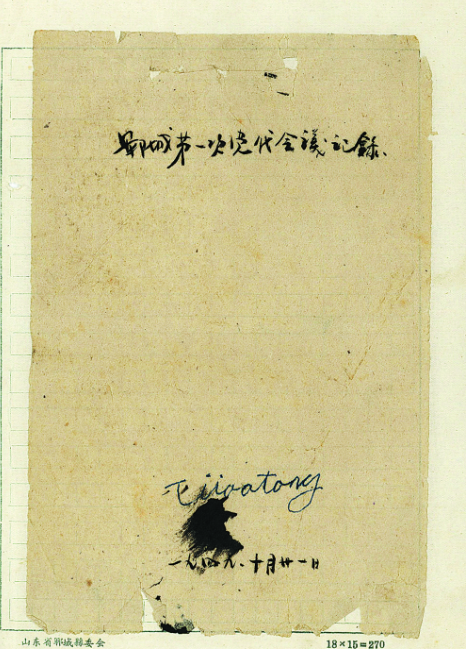 鄆城第一次党代会議記錄、
一九四九、十月廿一日
山东省鄆城縣委会
18×15=270